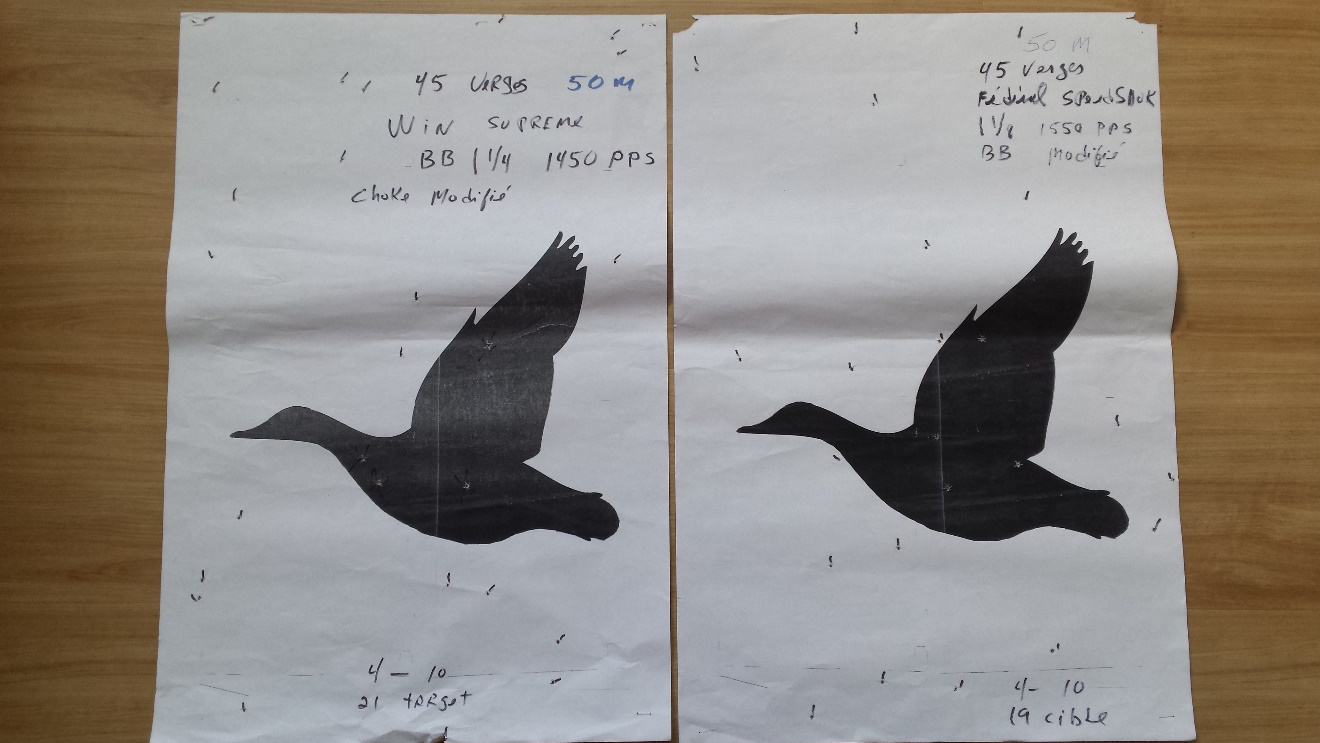 45 Verges 50 M
WiN SUPREME
BB 1 1/4 1450 PPS
Choke Modifié
4 - 10
21 tARget
50 M
45 Verges
Fédéral SpeedShok
1 1/8 1550 PPS
BB Modifié
4- 10
19 cible